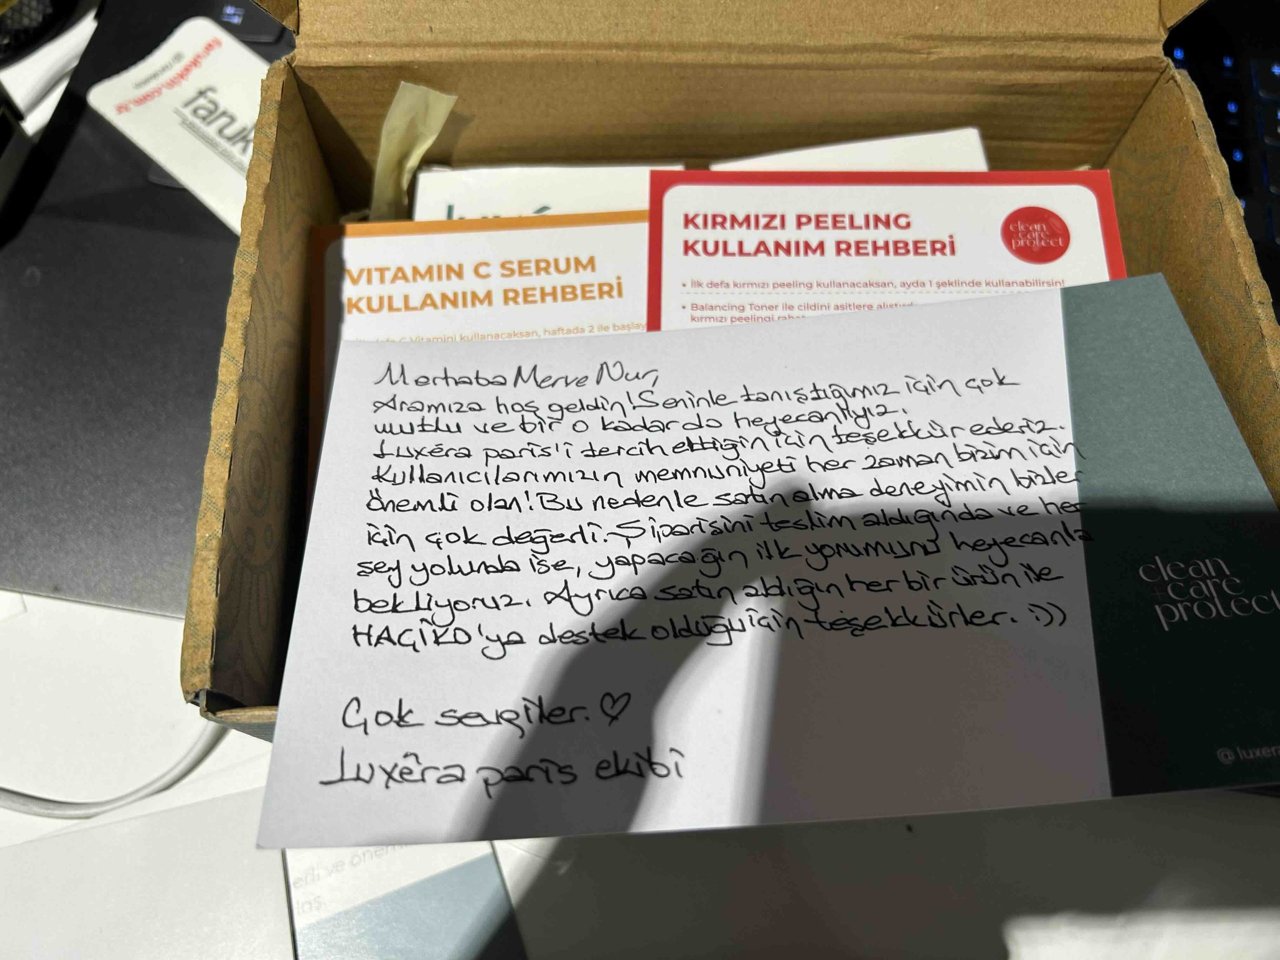 farukekin.com.tr
faruk
VITAMIN C SERUM
KULLANIM REHBERİ
C Vitamini kullanacaksan, haftada 2 ile
KIRMIZI PEELING
KULLANIM REHBERİ
clean
care
protect
• İlk defa kırmızı peeling kullanacaksan, ayda 1 şeklinde kullanabilirsin!
• Balancing Toner ile cildini asitlere
kırmızı peelingi
Merhaba Merve Nur,
Aramıza hoş geldin! Seninle tanıştığımız için çok
mutlu ve bir o kadar da heyecanlıyız.
Luxéra paris'i tercih ettiğin için teşekkür ederiz.
Kullanıcılarımızın memnuniyeti her zaman bizim için
önemli olan! Bu nedenle satın alma deneyimin bizler
için çok değerli. Siparişini teslim aldığında ve her
şey yolunda ise, yapacağın ilk yorumunu heyecanla
bekliyoruz. Ayrıca satın aldığın her bir ürün ile
HAÇİKO'ya destek olduğu için teşekkürler. :))
Çok sevgiler. ♡
Luxéra paris ekibi
clean
+care
protect
@luxer